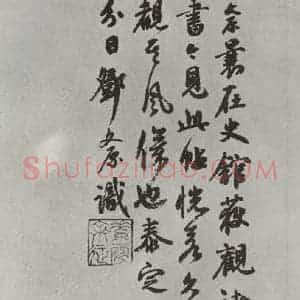 余曩在史館獲觀
書今見此帖恍若
觀其風儀也泰定
分日鄧文原識
Shufaziliao.com